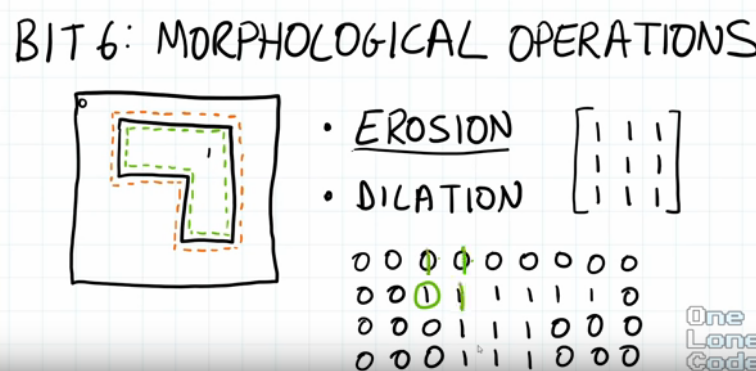 BIT 6: MORPHOLOGICAL OPERATIONS
0
1
• EROSION
• DILATION
1 1 1
1 1 1
1 1 1
0 0 0 0 0 0 0 0 0
0 0 1 1 1 1 1 1 0
0 0 0 1 1 1 0 0 0
0 0 0 1 1 1 0 0 0
One
Lone
Code